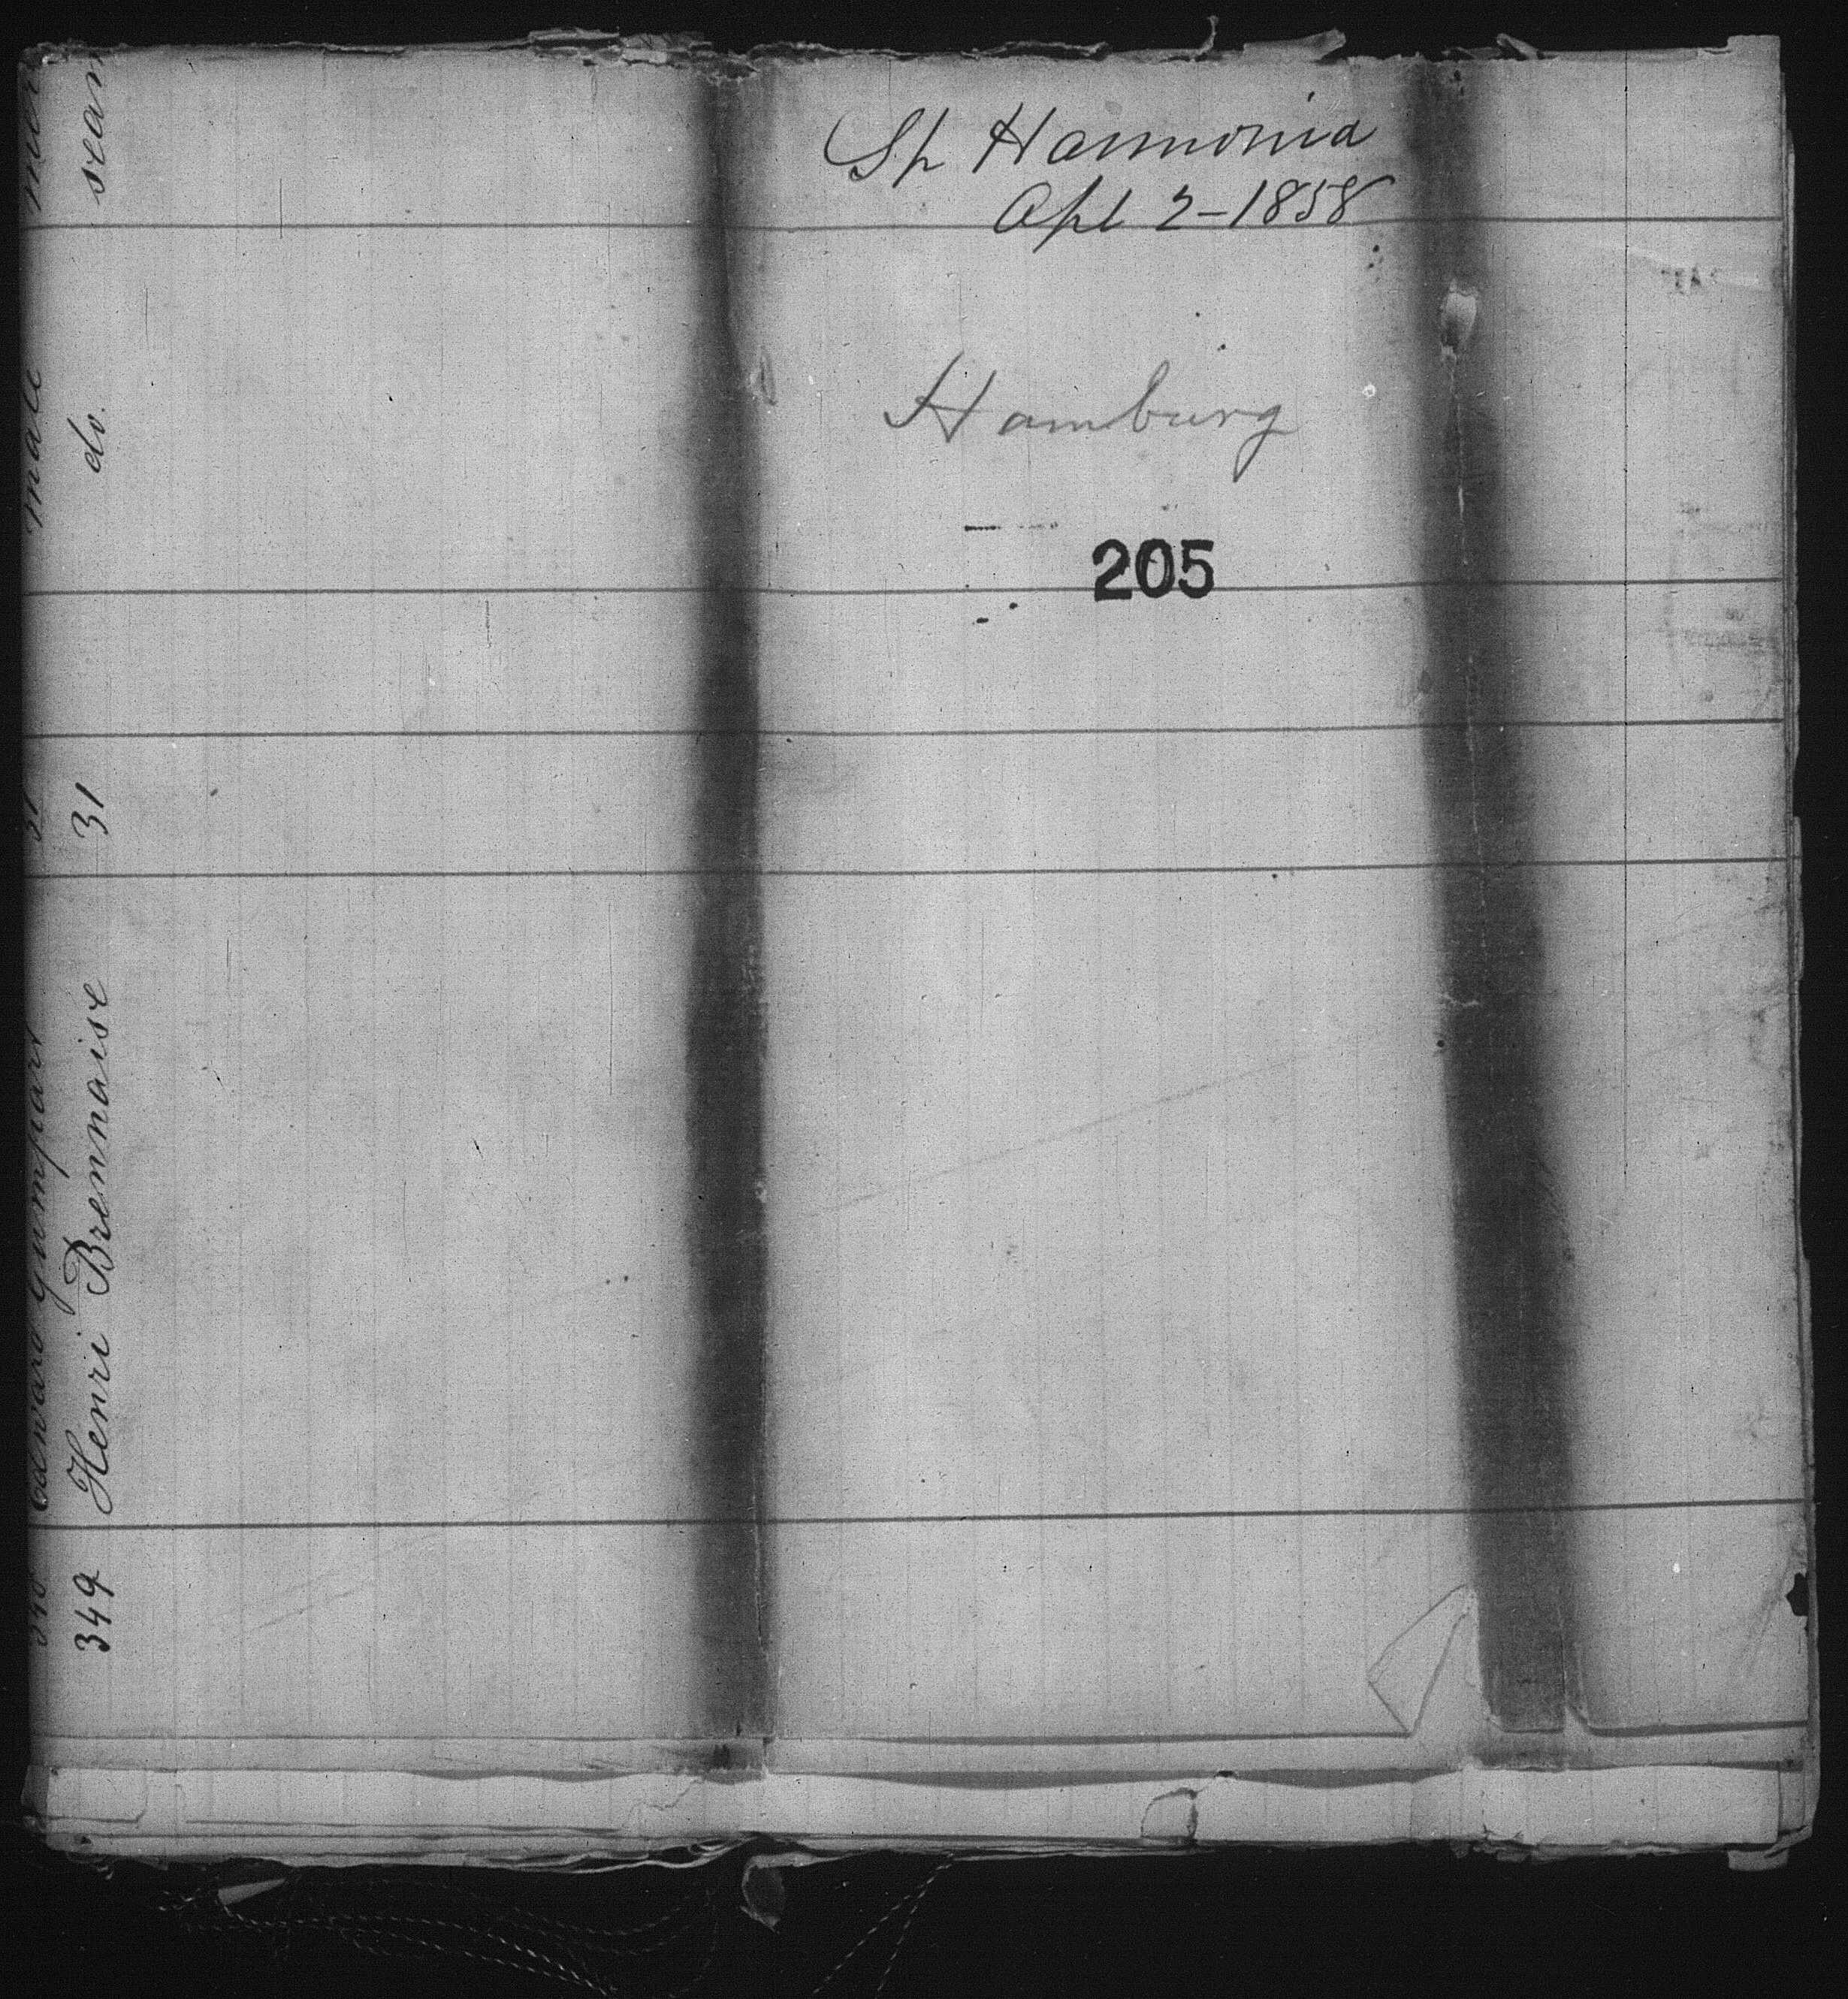 Sp Hammonia
Apl 2-1858
Hamburg
205
male
349 Henri Brennaise 31 do. seam